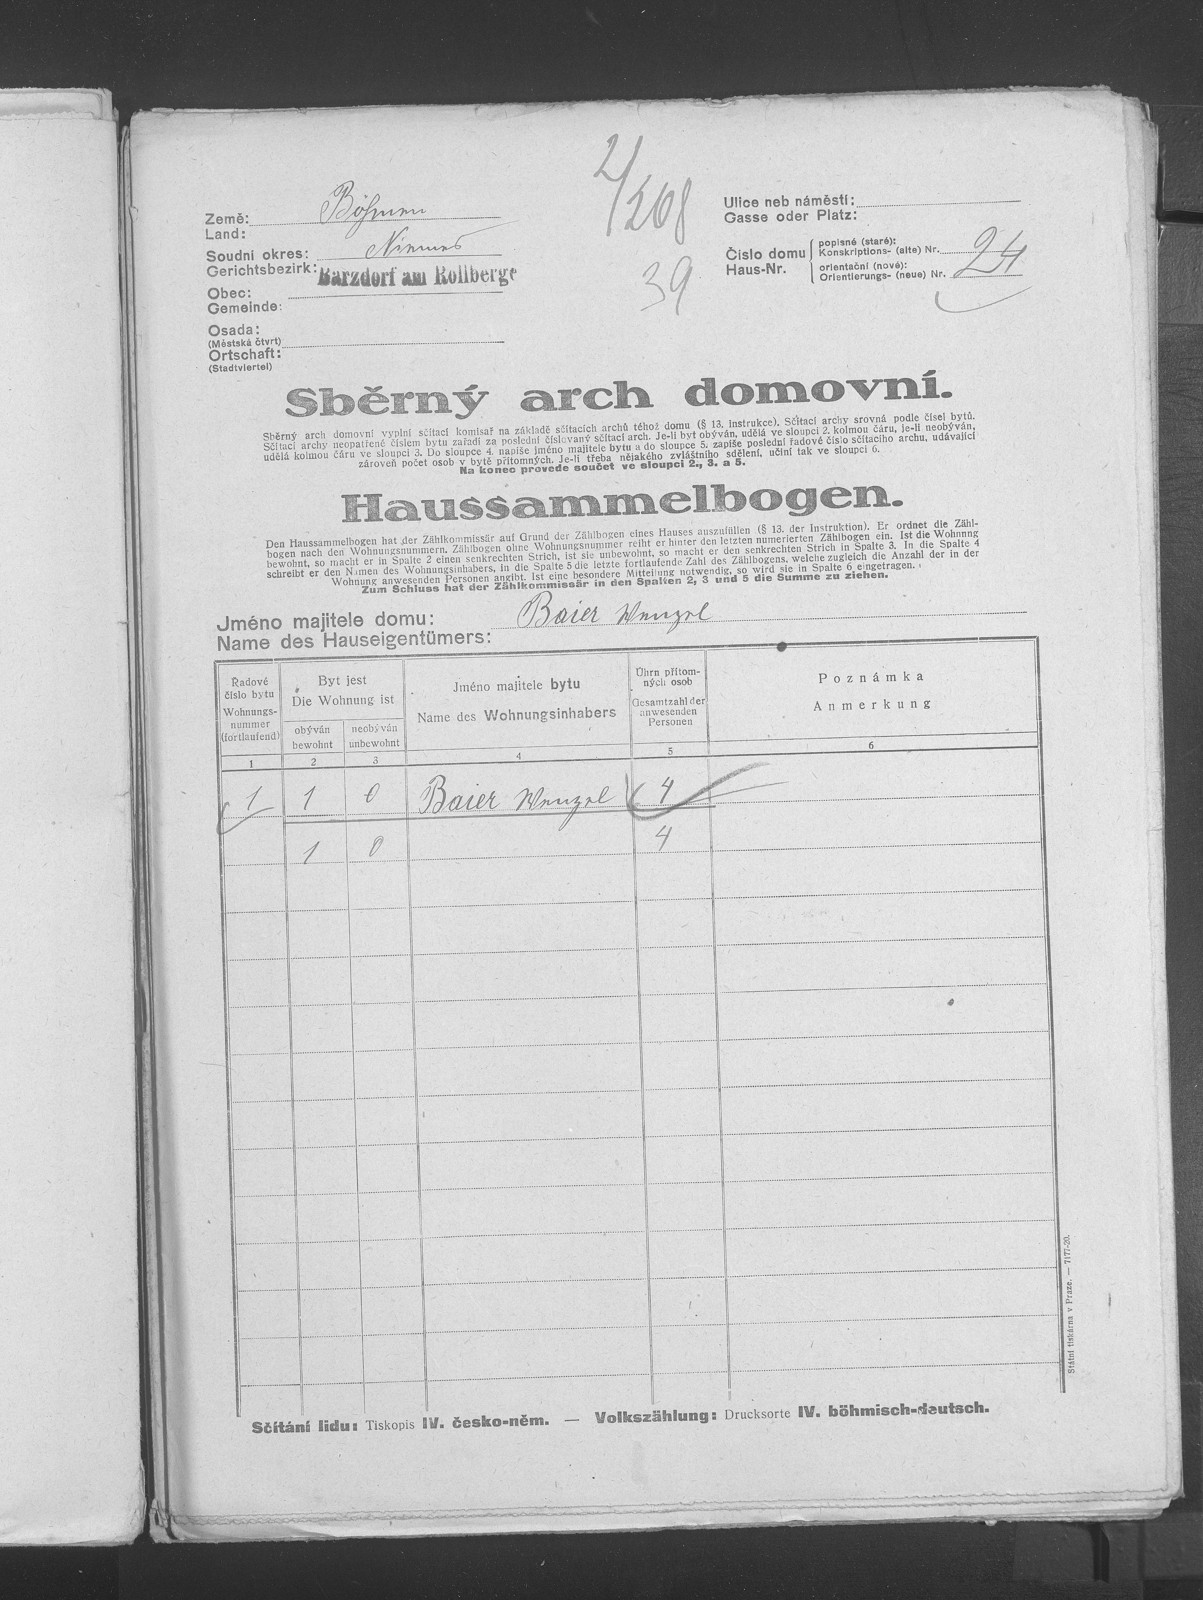 2/268
39
Země:
Land:
Böhmen
Soudní okres:
Gerichtsbezirk:
Niemes
Barzdorf am Rollberge
Obec:
Gemeinde:
Osada:
(Městská čtvrt)
Ortschaft:
(Stadtviertel)
Ulice neb náměstí:
Gasse oder Platz:
Číslo domu
Haus-Nr.
popisné (staré):
Konskriptions- (alte) Nr.
orientační (nové):
Orientierungs- (neue) Nr.
24
Sběrný arch domovní.
Sběrný arch domovní vyplní sčítací komisař na základě sčítacích archů téhož domu (§ 13. instrukce). Sčítací archy srovná podle čísel bytů.
Sčítací archy neopatřené číslem bytu zařadí za poslední číslovaný sčítací arch. Je-li byt obýván, udělá ve sloupci 2. kolmou čáru, je-li neobýván,
udělá kolmou čáru ve sloupci 3. Do sloupce 4. napíše jméno majitele bytu a do sloupce 5. zapíše poslední řadové číslo sčítacího archu, udávající
zároveň počet osob v bytě přítomných. Je-li třeba nějakého zvláštního sdělení, učiní tak ve sloupci 6.
Na konec provede součet ve sloupci 2., 3. a 5.
Haussammelbogen.
Den Haussammelbogen hat der Zählkommissär auf Grund der Zählbogen eines Hauses auszufüllen (§ 13. der Instruktion). Er ordnet die Zähl-
bogen nach den Wohnungsnummern. Zählbogen ohne Wohnungsnummer reiht er hinter den letzten numerierten Zählbogen ein. Ist die Wohnung
bewohnt, so macht er in Spalte 2 einen senkrechten Strich, ist sie unbewohnt, so macht er den senkrechten Strich in Spalte 3. In die Spalte 4
schreibt er den Namen des Wohnungsinhabers, in die Spalte 5 die letzte fortlaufende Zahl des Zählbogens, welche zugleich die Anzahl der in der
Wohnung anwesenden Personen angibt. Ist eine besondere Mitteilung notwendig, so wird sie in Spalte 6 eingetragen.
Zum Schluss hat der Zählkommissär in den Spalten 2, 3 und 5 die Summe zu ziehen.
Jméno majitele domu:
Name des Hauseigentümers:
Baier Wenzel
Řadové
číslo bytu
Wohnungs-
nummer
(fortlaufend)
Byt jest
Die Wohnung ist
obýván
bewohnt
neobýván
unbewohnt
Jméno majitele bytu
Name des Wohnungsinhabers
Úhrn přítom-
ných osob
Gesamtzahl der
anwesenden
Personen
Poznámka
Anmerkung
1 2 3 4 5 6
1 1 0 Baier Wenzel 4
1 0 4
Sčítání lidu: Tiskopis IV. česko-něm. — Volkszählung: Drucksorte IV. böhmisch-deutsch.
Státní tiskárna v Praze. — 7177-20.